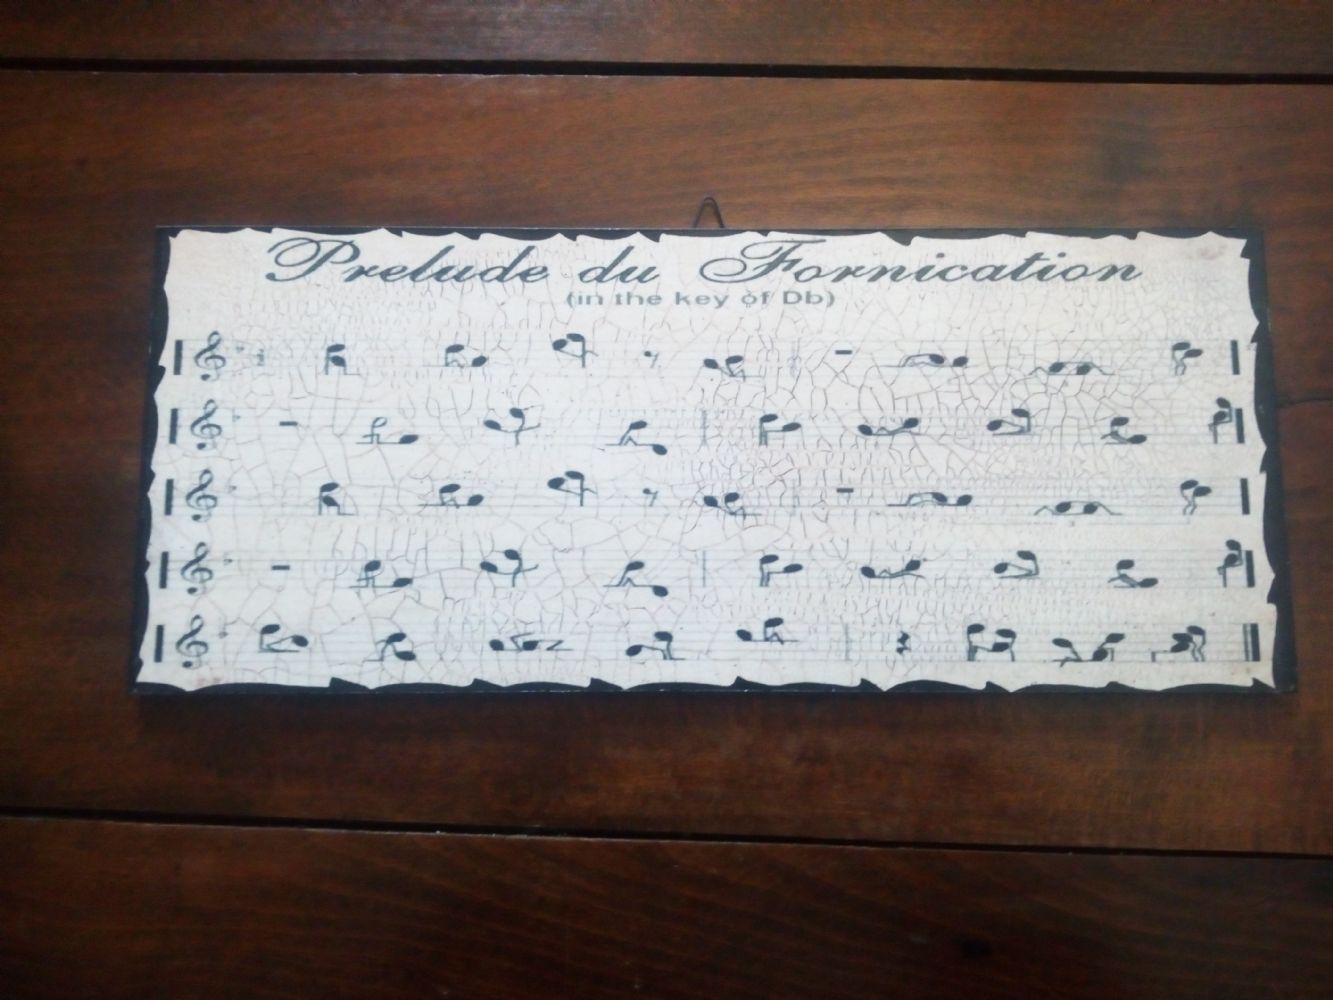 Prelude du Fornication
(in the key of Db)